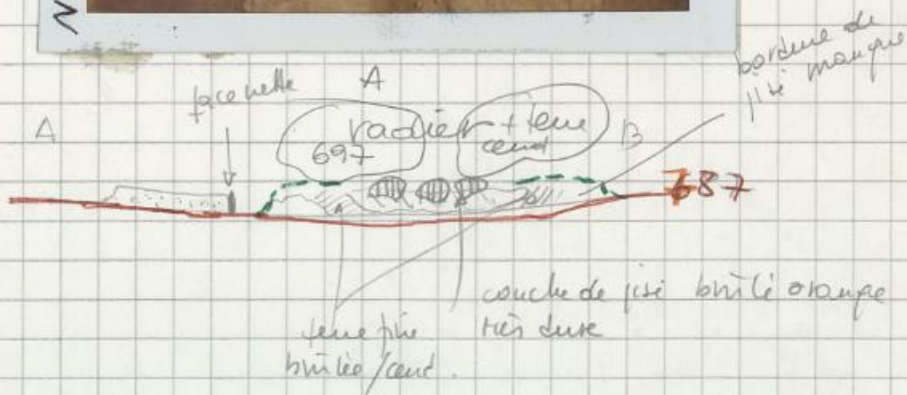 N
A
face nette
A
radier + terre
cend
697
B
bordure de
pisé manque
687
couche de pisé brûlé orange
très dure
terre fine
brûlée/cend.